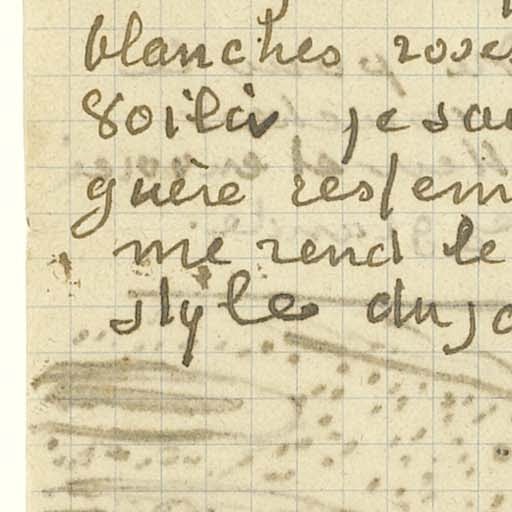 blanches roses
voilà je sau
guère ressem
me rend le
style du jo